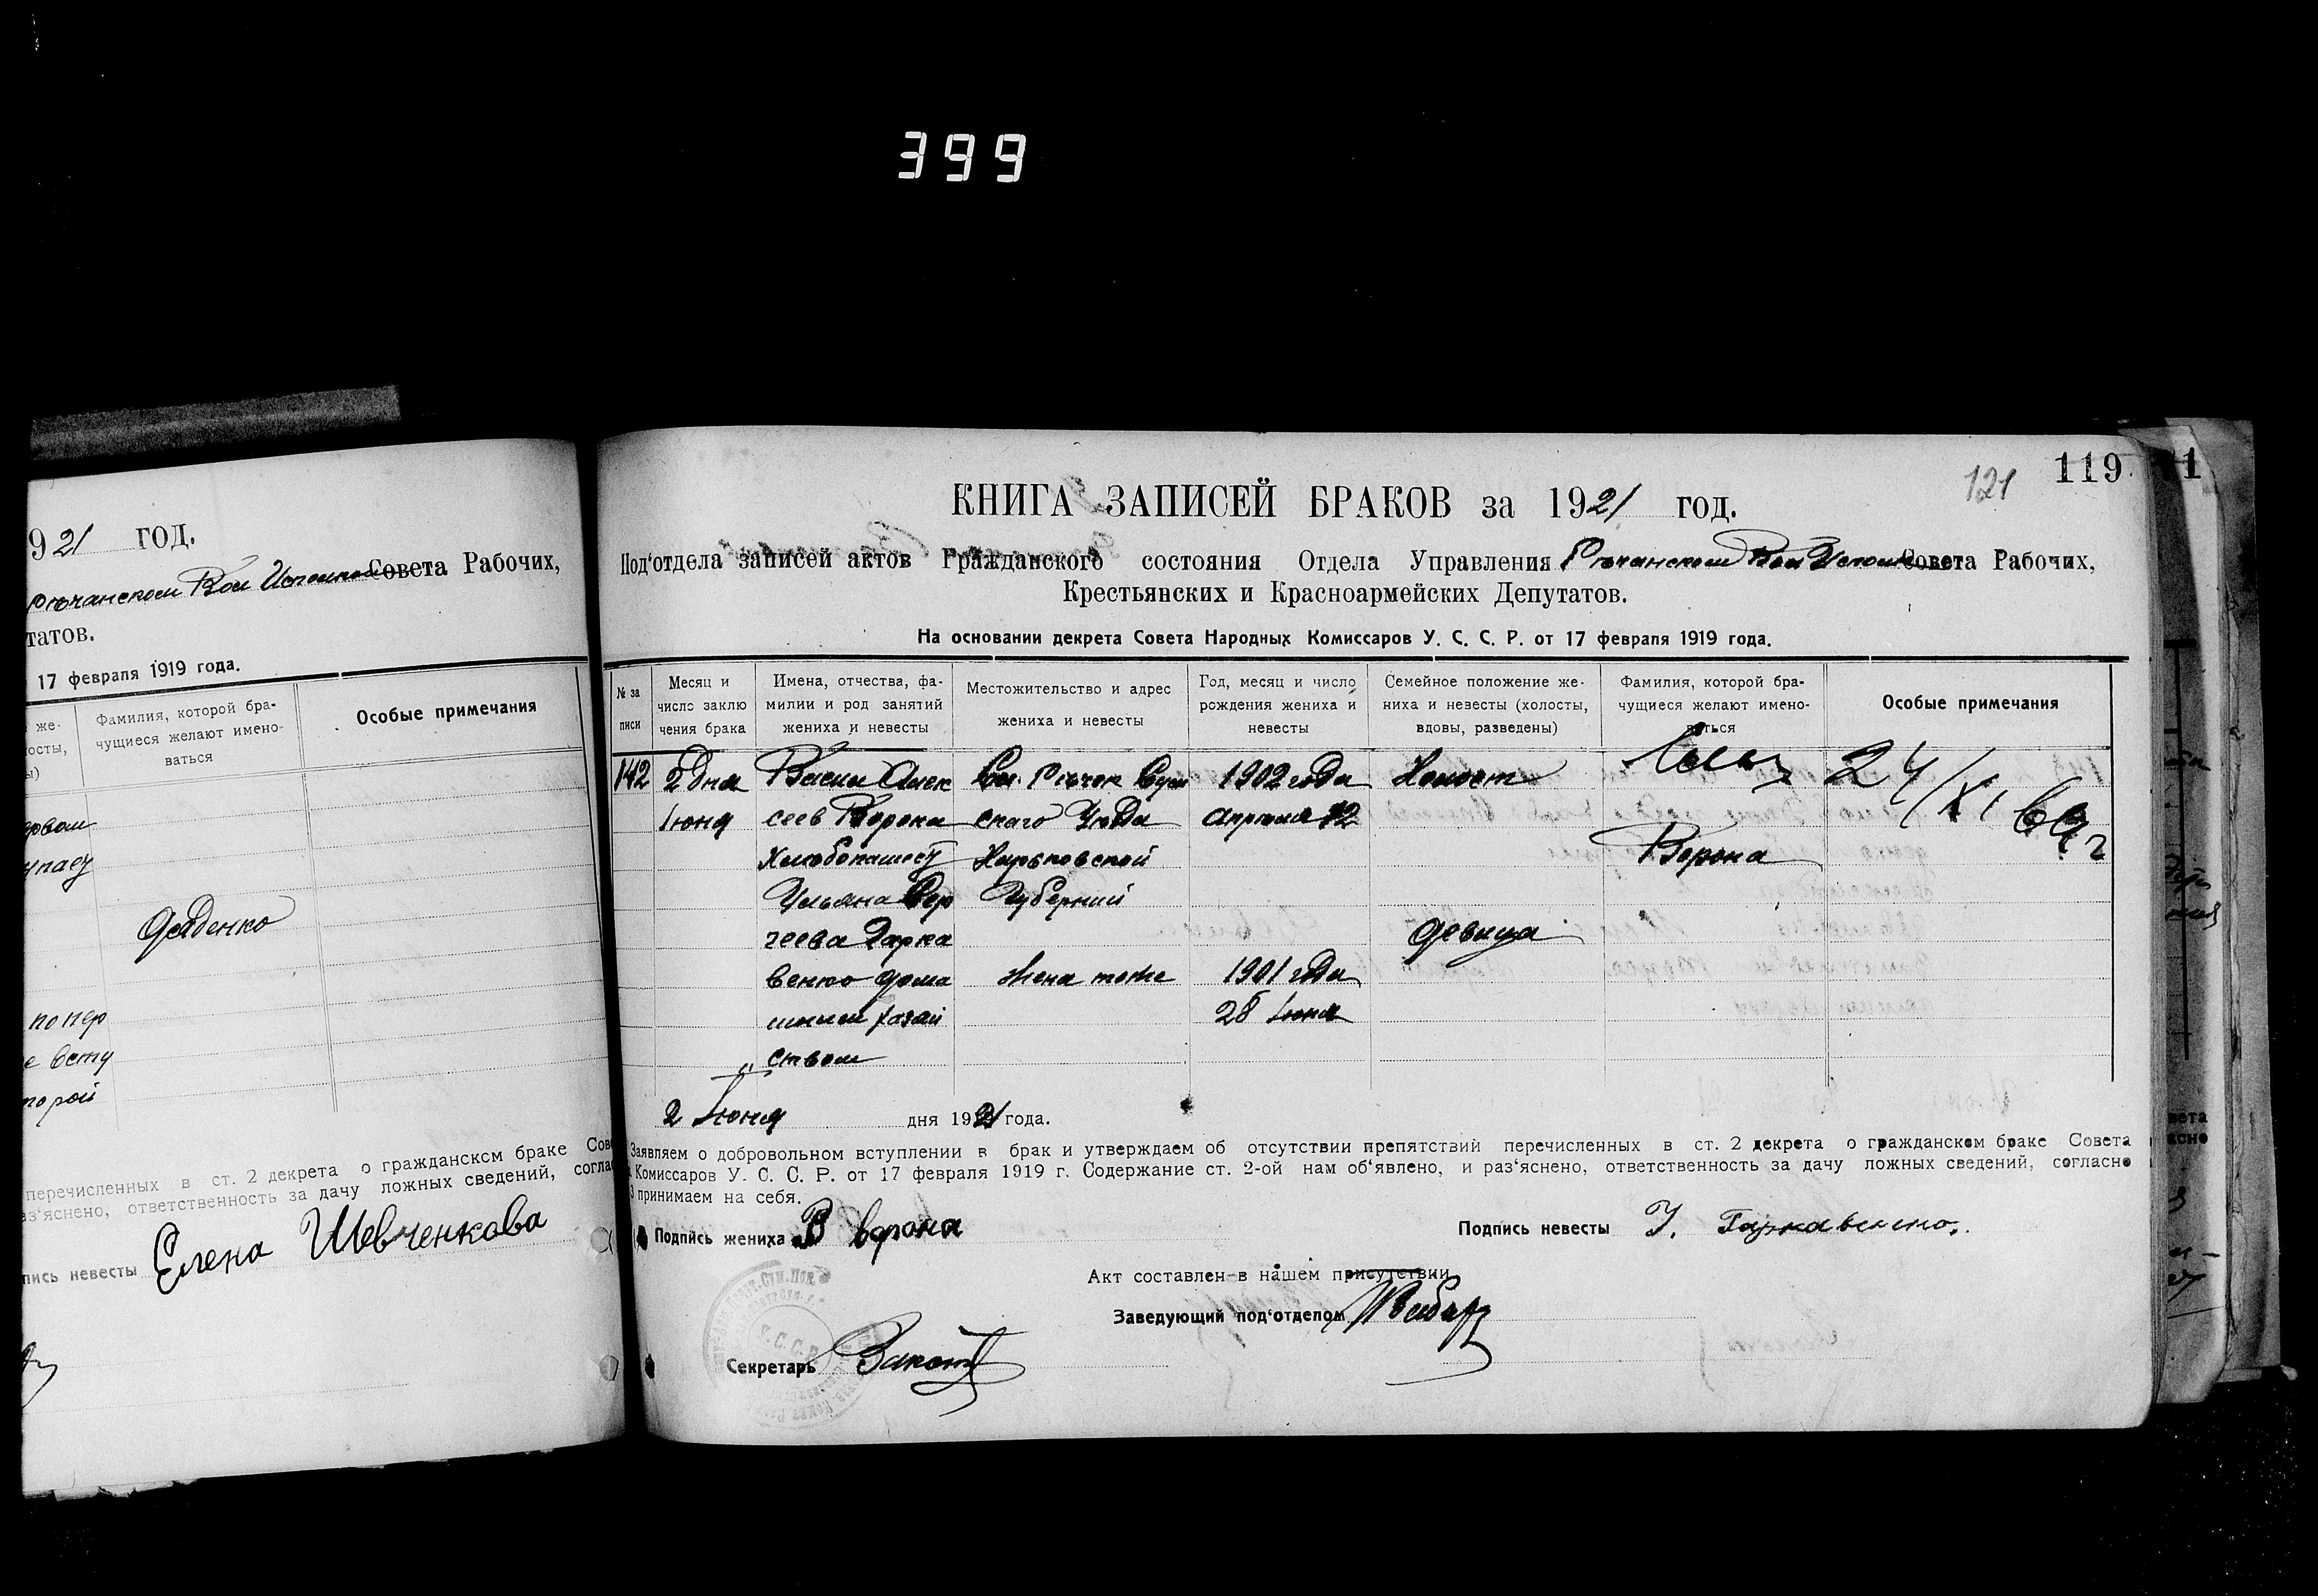 399
921 год.
Совета Рабочих,
татов.
17 февраля 1919 года.
же-
Фамилия, которой бра-
чущиеся желают имено-
ваться
Особые примечания
Дяденко
попер
перечисленных в ст. 2 декрета о гражданском браке Сове
аз‘яснено, ответственность за дачу ложных сведений, соглас
пись невесты Елена Шевченкова
121
119
КНИГА ЗАПИСЕЙ БРАКОВ за 1921 год.
Под‘отдела записей актов Гражданского состояния Отдела Управления Речанском Вол Исполком Совета Рабочих,
Крестьянских и Красноармейских Депутатов.
На основании декрета Совета Народных Комиссаров У. С. С. Р. от 17 февраля 1919 года.
№ за
писи
Месяц и
число заклю
чения брака
Имена, отчества, фа-
милии и род занятий
жениха и невесты
Местожительство и адрес
жениха и невесты
Год, месяц и число
рождения жениха и
невесты
Семейное положение же-
ниха и невесты (холосты,
вдовы, разведены)
Фамилия, которой бра-
чущиеся желают имено-
ваться
Особые примечания
142 2 дня Васил Алек Сл. Речок Сум 1902 года Холост 24/XI
Июня сеев Ворона скаго Уезда Апреля 12
Хлебопашец Харьковской Ворона
Ульяна Сер Губернии
геева Гарка девица
венко дома жена тоже 1901 года
шним хозяй 28 Июня
ством
2 Июня дня 1921 года.
Заявляем о добровольном вступлении в брак и утверждаем об отсутствии препятствий перечисленных в ст. 2 декрета о гражданском браке Совета
Комиссаров У. С. С. Р. от 17 февраля 1919 г. Содержание ст. 2-ой нам об‘явлено, и раз‘яснено, ответственность за дачу ложных сведений, согласно
3 принимаем на себя.
Подпись жениха В Ворона
Подпись невесты У. Гаркавенко.
Акт составлен в нашем присутствии
Заведующий под‘отделом
Секретарь